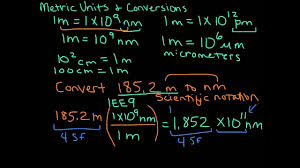 Metric Units & Conversions
1m = 1×10⁹ nm
1m = 1×10¹² pm
1m = 10⁹ nm
1m = 10⁶ µm
micrometers
10² cm = 1m
100cm = 1m
Convert 185.2 m to nm
Scientific notation
1EE9
185.2m (1×10⁹nm / 1m) = 1.852 ×10¹¹ nm
4 SF
4 SF